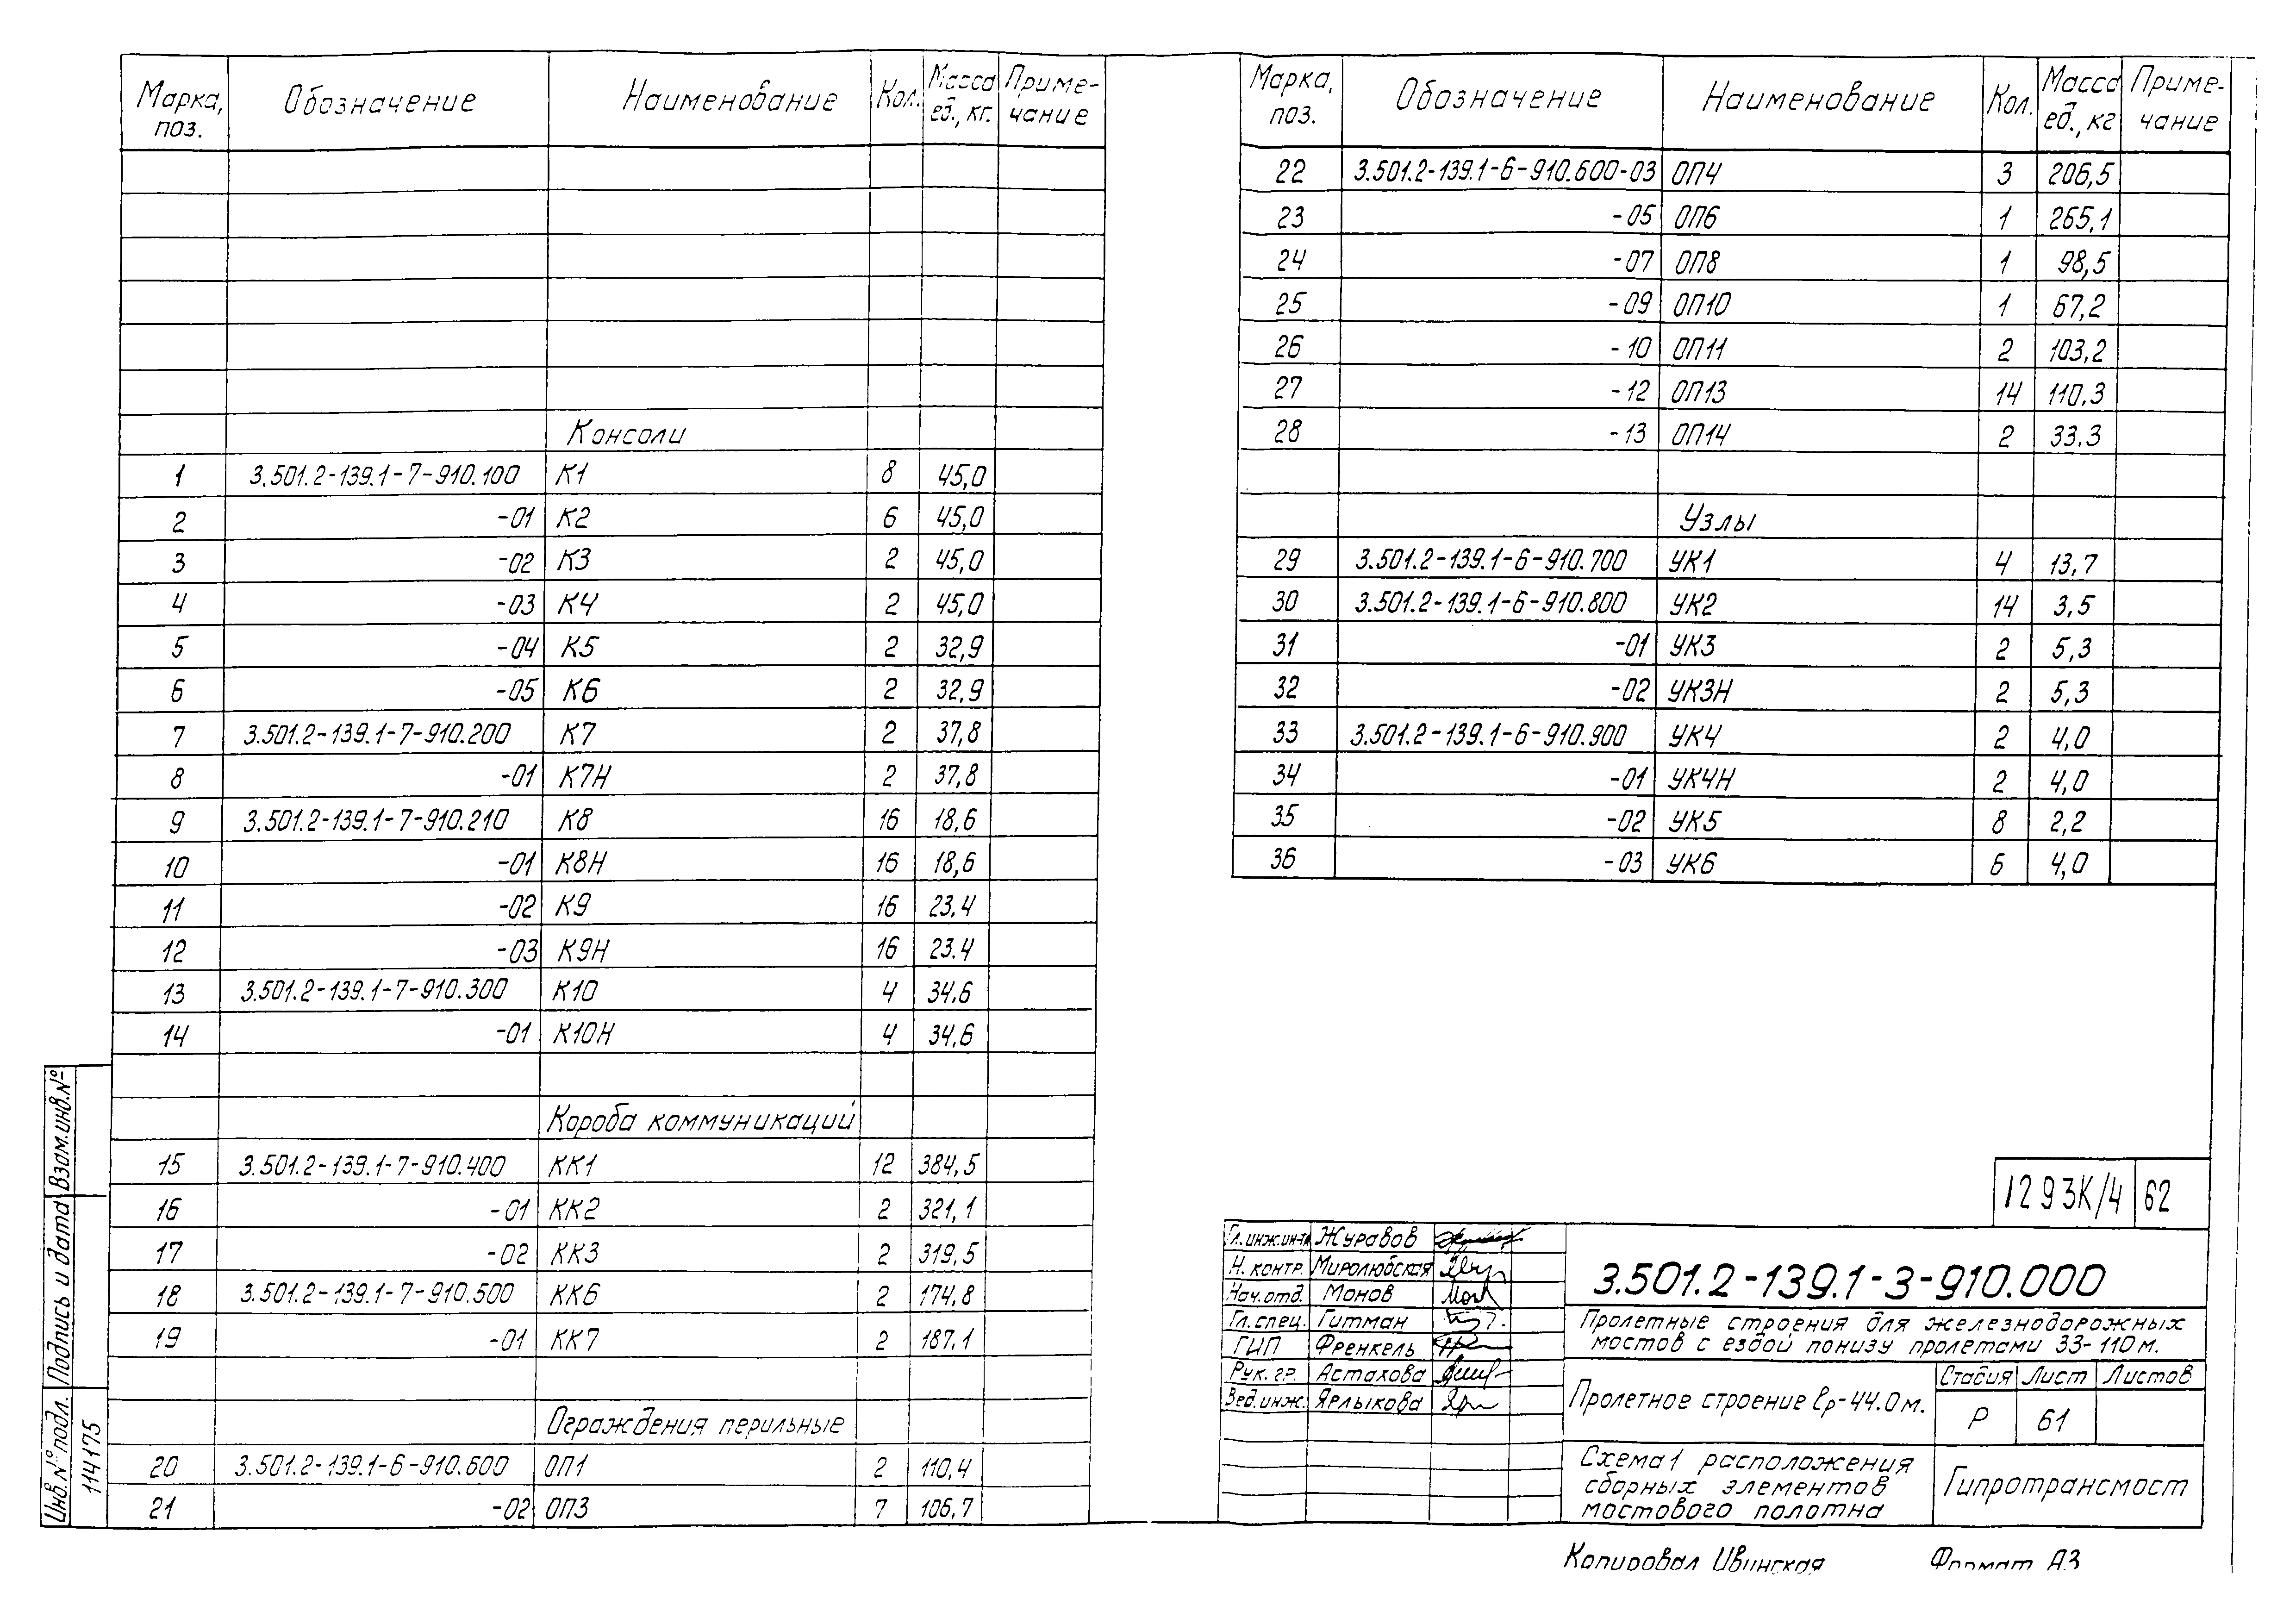 Марка, поз. Обозначение Наименование Кол. Масса ед., кг. Приме-чание
Консоли
1 3.501.2-139.1-7-910.100 К1 8 45,0
2 -01 К2 6 45,0
3 -02 К3 2 45,0
4 -03 К4 2 45,0
5 -04 К5 2 32,9
6 -05 К6 2 32,9
7 3.501.2-139.1-7-910.200 К7 2 37,8
8 -01 К7Н 2 37,8
9 3.501.2-139.1-7-910.210 К8 16 18,6
10 -01 К8Н 16 18,6
11 -02 К9 16 23,4
12 -03 К9Н 16 23.4
13 3.501.2-139.1-7-910.300 К10 4 34.6
14 -01 К10Н 4 34,6
Короба коммуникаций
15 3.501.2-139.1-7-910.400 КК1 12 384,5
16 -01 КК2 2 321,1
17 -02 КК3 2 319,5
18 3.501.2-139.1-7-910.500 КК6 2 174,8
19 -01 КК7 2 187,1
Ограждения перильные
20 3.501.2-139.1-6-910.600 ОП1 2 110,4
21 -02 ОП3 7 106,7
Марка, поз. Обозначение Наименование Кол. Масса ед., кг Приме-чание
22 3.501.2-139.1-6-910.600-03 ОП4 3 206,5
23 -05 ОП6 1 265,1
24 -07 ОП8 1 98,5
25 -09 ОП10 1 67,2
26 -10 ОП11 2 103,2
27 -12 ОП13 14 110.3
28 -13 ОП14 2 33.3
Узлы
29 3.501.2-139.1-6-910.700 УК1 4 13,7
30 3.501.2-139.1-6-910.800 УК2 14 3,5
31 -01 УК3 2 5,3
32 -02 УК3Н 2 5,3
33 3.501.2-139.1-6-910.900 УК4 2 4,0
34 -01 УК4Н 2 4,0
35 -02 УК5 8 2,2
36 -03 УК6 6 4,0
1293К/4 62
Гл.инж.ин-та Журавов
Н. контр. Миролюбская
Нач.отд. Монов
Гл.спец. Гитман
ГИП Френкель
Рук. гр. Астахова
Вед.инж. Ярлыкова
3.501.2-139.1-3-910.000
Пролетные строения для железнодорожных
мостов с ездой понизу пролетами 33-110м.
Пролетное строение lр-44.0м.
Стадия Лист Листов
Р 61
Схема1 расположения
сборных элементов
мостового полотна
Гипротрансмост
Копировал Ивинская Формат А3
Взам.инв.№
Подпись и дата
Инв.№подл.
114175